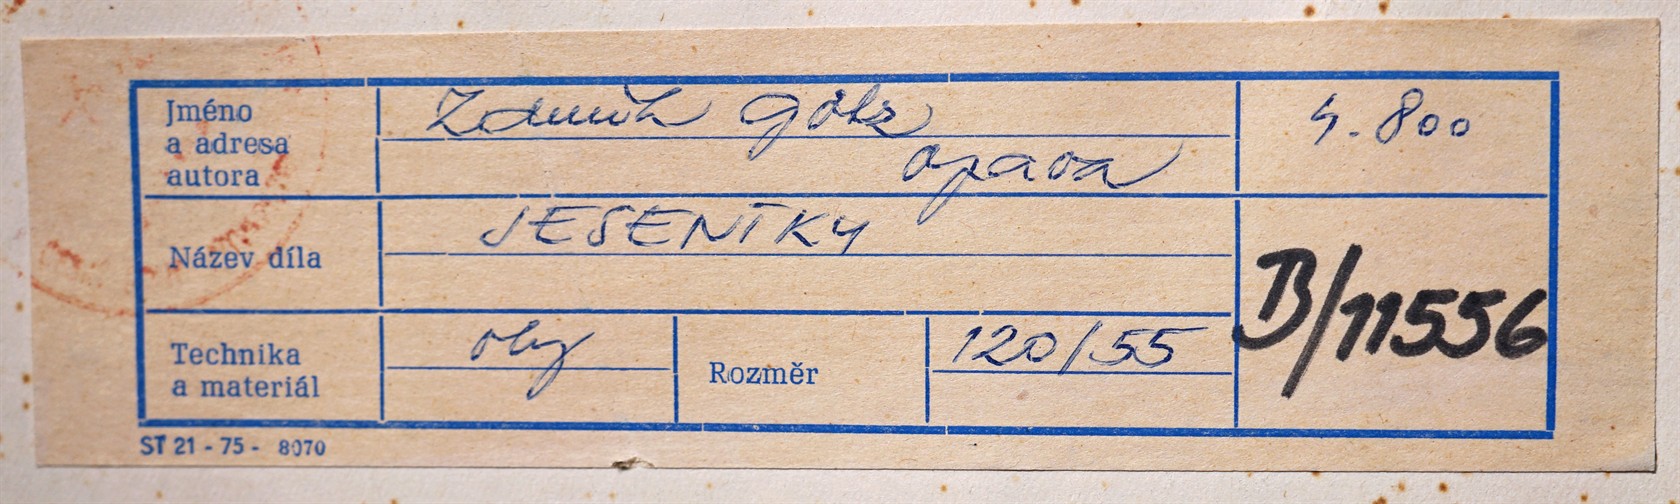 Jméno
a adresa
autora
Zdeněk Götz
Opava
4.800
Název díla
JESENÍKY
B/11556
Technika
a materiál
olej
Rozměr
120/55
ST 21 - 75 - 8070